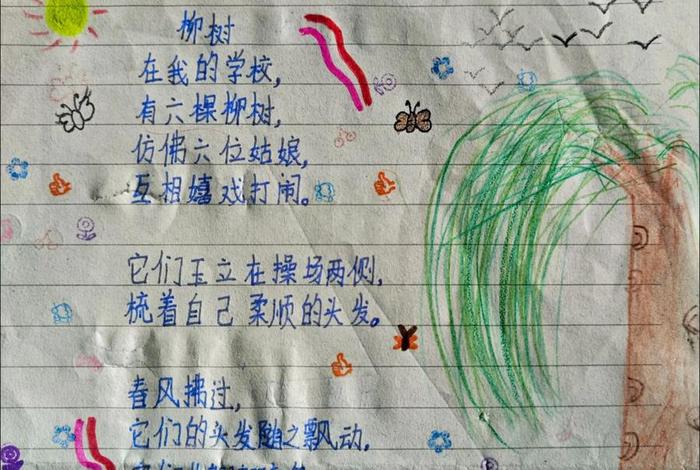 柳树
在我的学校,
有六棵柳树,
仿佛六位姑娘,
互相嬉戏打闹。
它们玉立在操场两侧,
梳着自己柔顺的头发。
春风拂过,
它们的头发随之飘动,